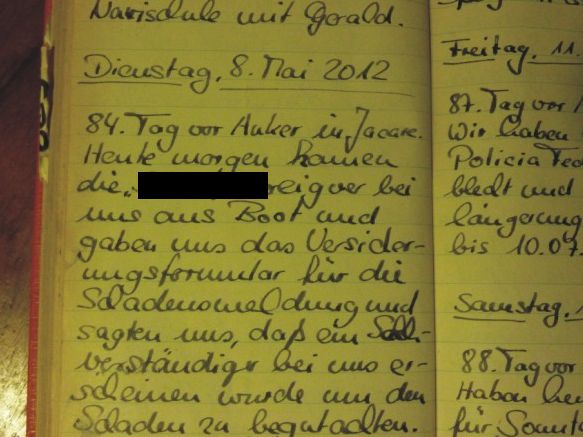 Navischule mit Gerald.
Dienstag, 8. Mai 2012
84. Tag vor Anker in Jacare.
Heute morgen kamen
die bei
uns ans Boot und
gaben uns das Versicher-
ungsformular für die
Schadensmeldung und
sagten uns, daß ein Sach-
verständiger bei uns er-
scheinen würde um den
Schaden zu begutachten.
Freitag, 11.
87. Tag vor
Wir haben
Policia Fed
bis 10.07.
Samstag, 1
88. Tag vor
Haben heu
für Sonnt